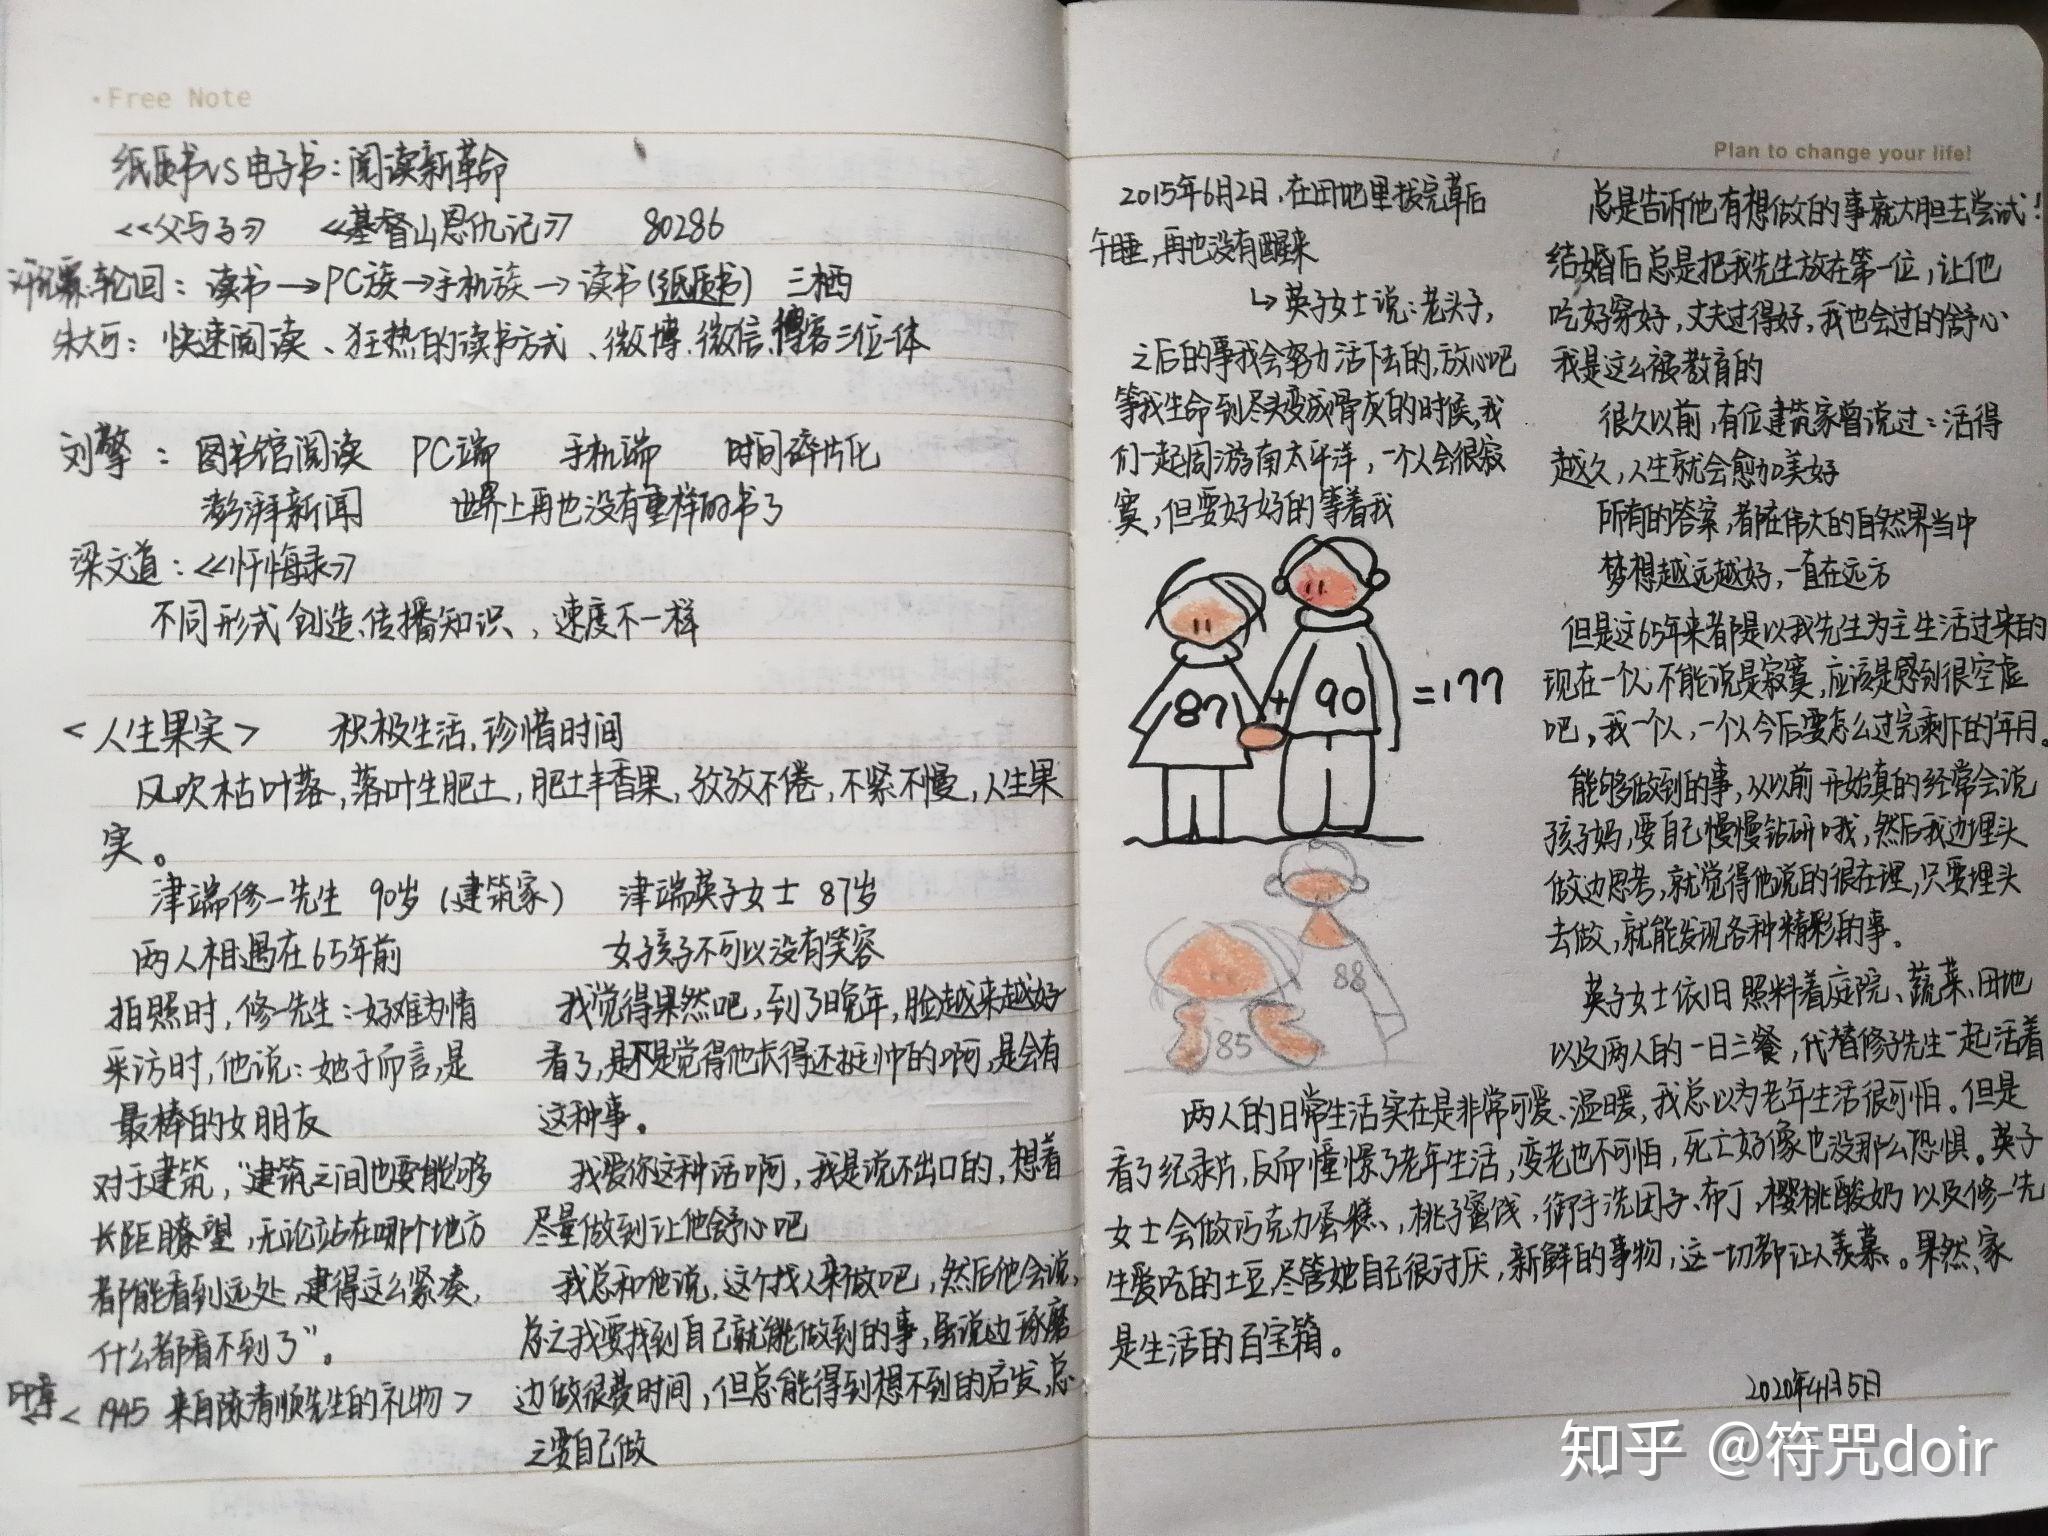 Free Note
纸质书VS电子书：阅读新革命
<<父与子>> <<基督山恩仇记>> 80286
轮回：读书→PC族→手机族→读书(纸质书) 三栖
朱大可：快速阅读、狂热的读书方式、微博、微信、博客三位一体
刘擎：图书馆阅读 PC端 手机端 时间碎片化
澎湃新闻 世界上再也没有重样的书了
梁文道：<<忏悔录>>
不同形式创造、传播知识，速度不一样
<人生果实> 积极生活，珍惜时间
风吹枯叶落，落叶生肥土，肥土丰香果，孜孜不倦，不紧不慢，人生果
实。
津端修一先生 90岁（建筑家） 津端英子女士 87岁
两人相遇在65年前
拍照时，修一先生：好难为情
采访时，他说：她于而言，是
最棒的女朋友
对于建筑，“建筑之间也要能够
长距瞭望，无论站在哪个地方
都能看到远处，建得这么紧凑，
什么都看不到了”。
印章
<1945 来自陈清顺先生的礼物>
女孩子不可以没有笑容
我觉得果然吧，到了晚年，脸越来越好
看了，是不是觉得他长得还挺帅的啊，是会有
这种事。
我爱你这种话啊，我是说不出口的，想着
尽量做到让他舒心吧
我总和他说，这个找人来做吧，然后他会说，
总之我要找到自己就能做到的事，虽说边琢磨
边做很费时间，但总能得到想不到的启发，总
之要自己做
Plan to change your life!
2015年6月2日，在田地里拔完草后
午睡，再也没有醒来
↳英子女士说：老头子，
之后的事我会努力活下去的，放心吧
等我生命到尽头变成骨灰的时候，我
们一起周游南太平洋，一个人会很寂
寞，但要好好的等着我
87+90=177
88
85
总是告诉他有想做的事就大胆去尝试！
结婚后总是把我先生放在第一位，让他
吃好穿好，丈夫过得好，我也会过的舒心
我是这么被教育的
很久以前，有位建筑家曾说过：活得
越久，人生就会愈加美好
所有的答案，都在伟大的自然界当中
梦想越远越好，一直在远方
但是这65年来都是以我先生为主生活过来的
现在一个人，不能说是寂寞，应该是感到很空虚
吧，我一个人，一个人今后要怎么过完剩下的年月。
能够做到的事，从以前开始真的经常会说
孩子妈，要自己慢慢钻研哦，然后我边埋头
做边思考，就觉得他说的很在理，只要埋头
去做，就能发现各种精彩的事。
英子女士依旧照料着庭院、蔬菜、田地
以及两人的一日三餐，代替修子先生一起活着
两人的日常生活实在是非常可爱、温暖，我总以为老年生活很可怕。但是
看了纪录片，反而憧憬了老年生活，变老也不可怕，死亡好像也没那么恐惧。英子
女士会做巧克力蛋糕、桃子蜜饯，御手洗团子、布丁，樱桃酸奶以及修一先
生爱吃的土豆，尽管她自己很讨厌，新鲜的事物，这一切都让人羡慕。果然，家
是生活的百宝箱。
2020年4月5日
知乎 @符咒doir